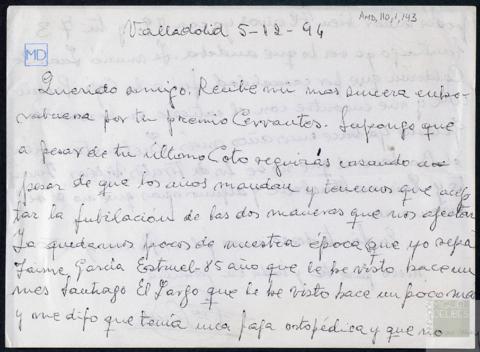 AMD, 110, 1, 143
Valladolid 5-12-94
MD
Querido amigo. Recibe mi mas sincera enho-
rabuena por tu premio Cervantes. Supongo que
a pesar de tu último Coto seguirás cazando a
pesar de que los años mandan y tenemos que acep
tar la jubilacion de las dos maneras que nos afectan
Ya quedamos pocos de nuestra época que yo sepa
Jaime, García Estruel- 85 año que le he visto hace un
mes Santiago El Largo que le he visto hace un poco mas
y me dijo que tenía una faja ortopédica y que no
DELIBES